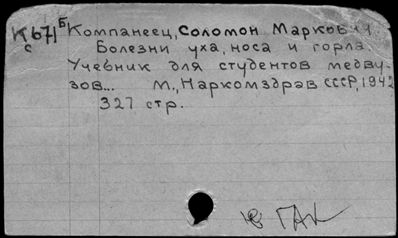 К 671 Б Компанеец, Соломон Маркович.
с Болезни уха, носа и горла
Учебник для студентов медву-
зов... М., Наркомздрав СССР, 1942
327 стр.
ГАК